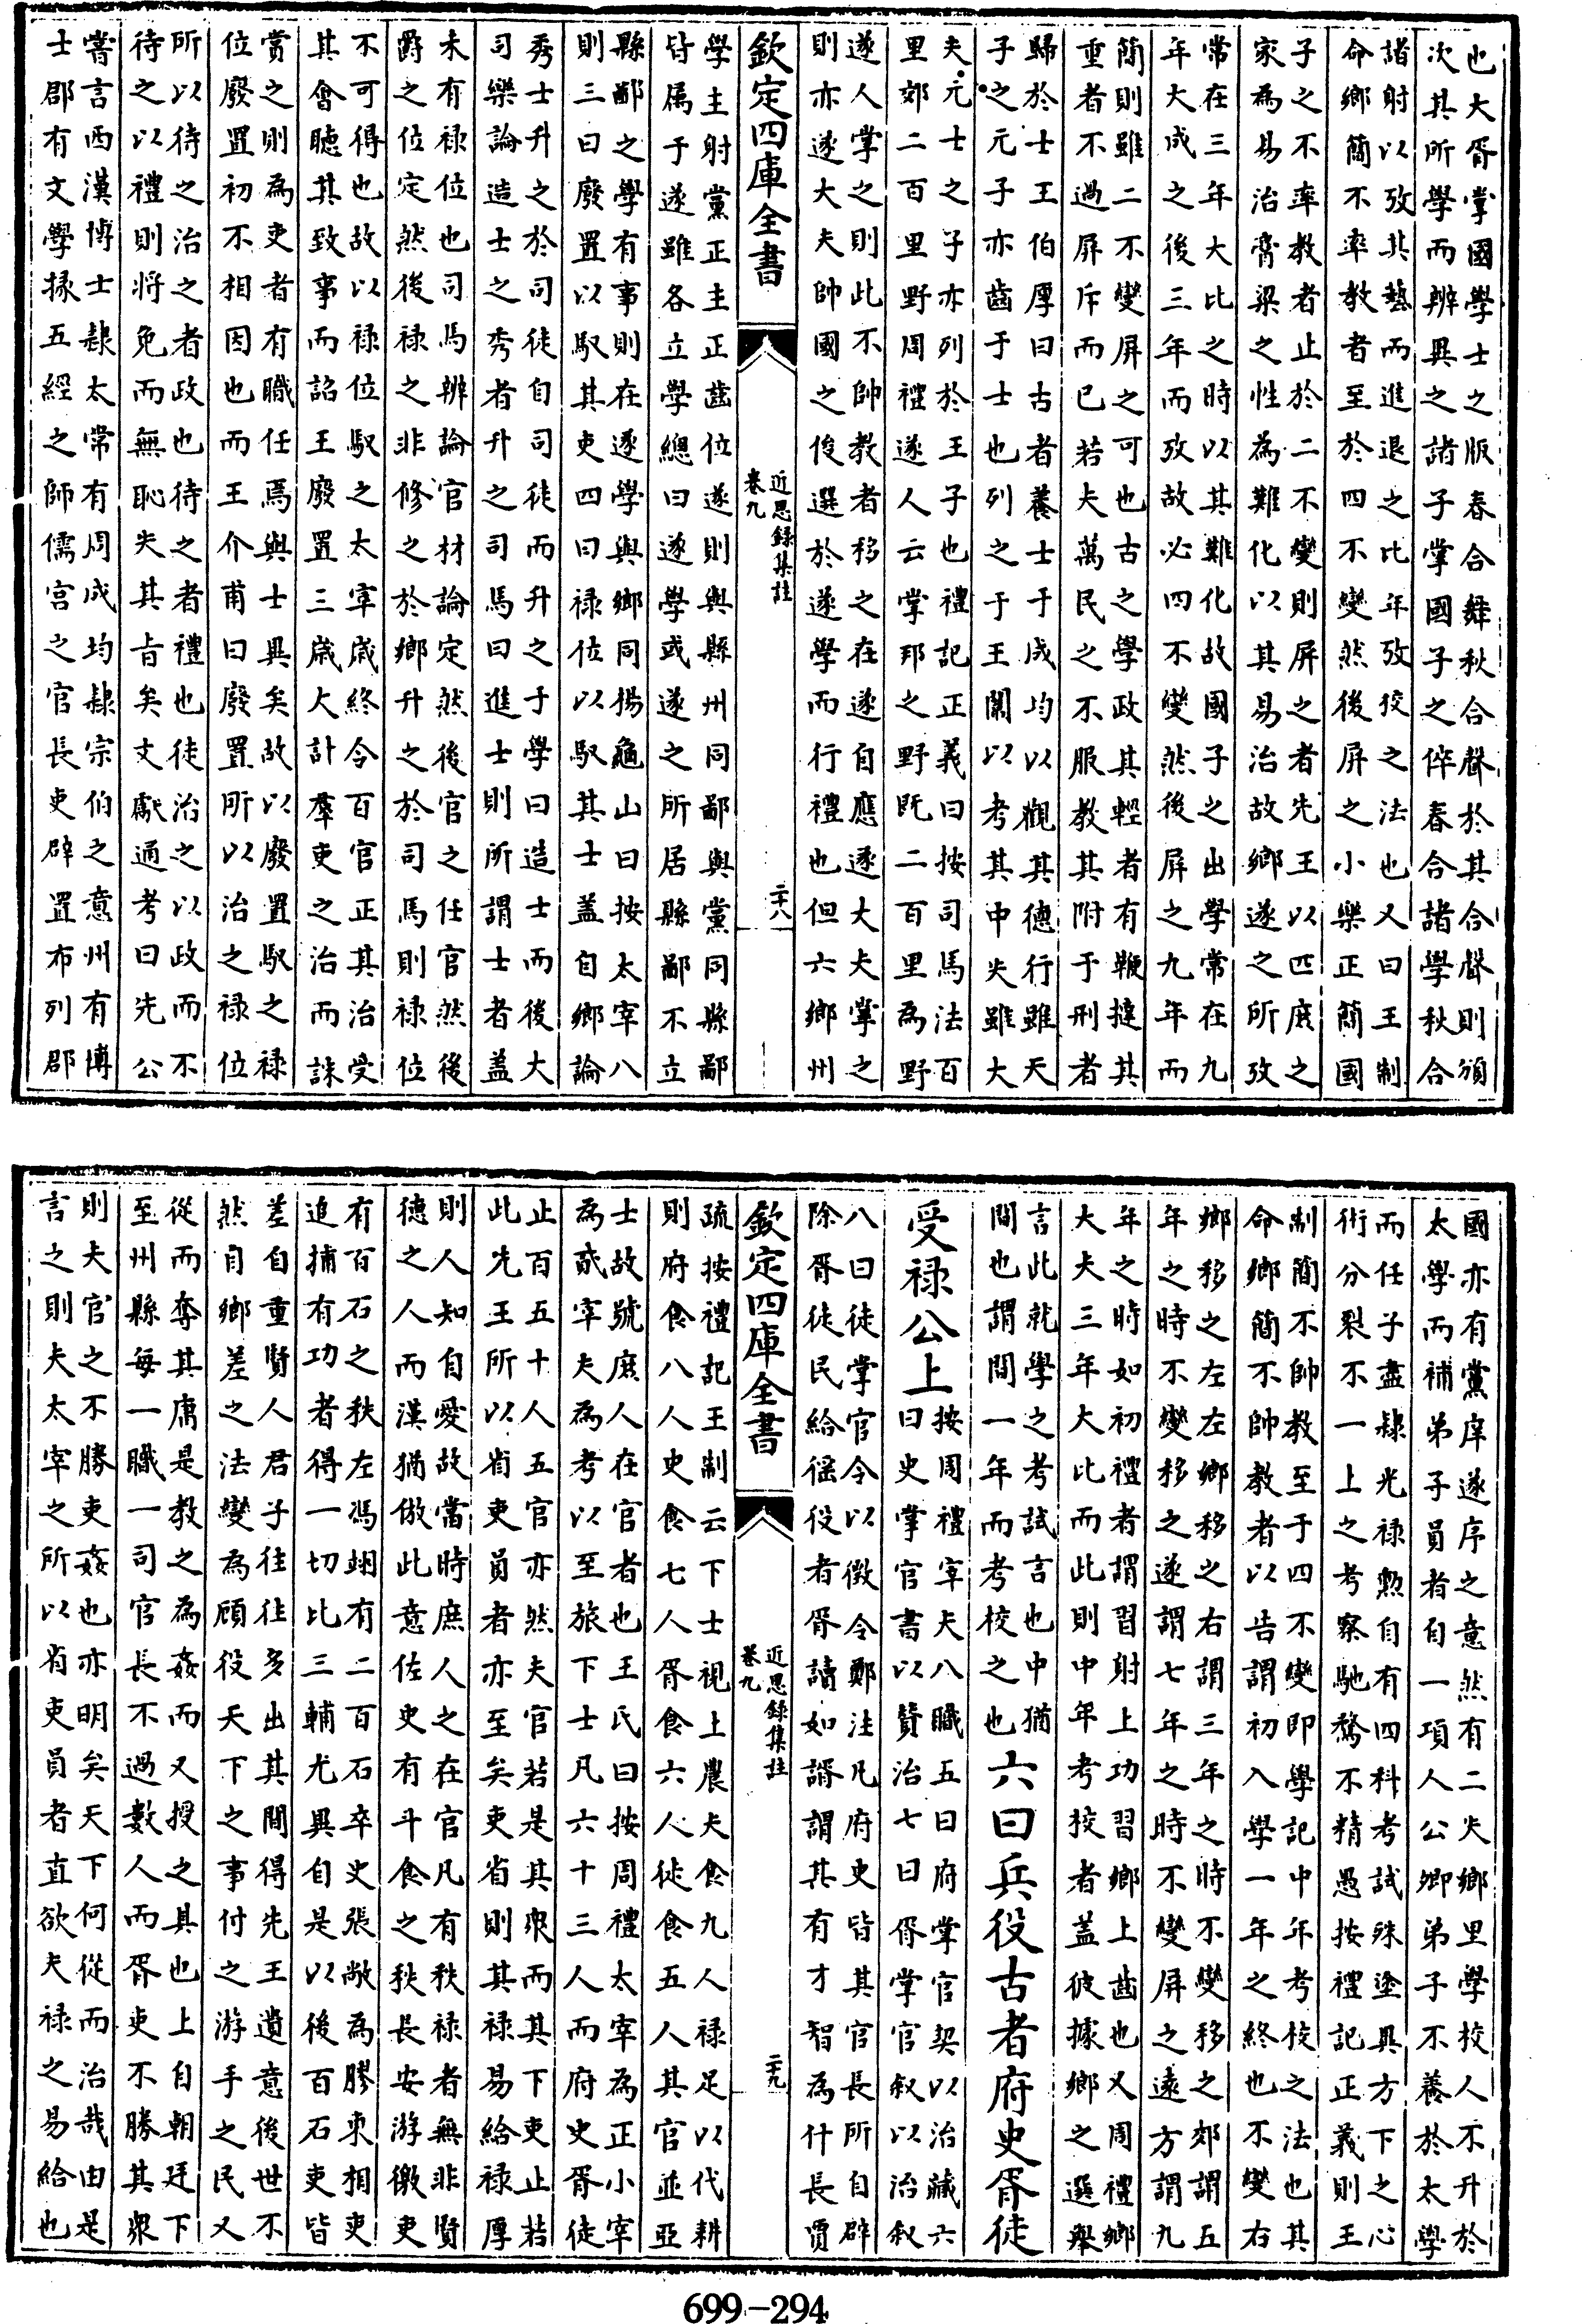 也大胥掌國學士之版春合舞秋合聲於其合聲則頒
次其所學而辨異之諸子掌國子之倅春合諸學秋合
諸射以攷其藝而進退之比年攷校之法也又曰王制
命鄉簡不率教者至於四不變然後屏之小樂正簡國
子之不率教者止於二不變則屏之者先王以匹庶之
家為易治膏粱之性為難化以其易治故鄉遂之所攷
常在三年大比之時以其難化故國子之出學常在九
年大成之後三年而攷故必四不變然後屏之九年而
簡則雖二不變屏之可也古之學政其輕者有鞭撻其
重者不過屏斥而已若夫萬民之不服教其附于刑者
歸於士王伯厚曰古者養士于成均以觀其德行雖天
子之元子亦齒于士也列之于王闈以考其中失雖大
夫元士之子亦列於王子也禮記正義曰按司馬法百
里郊二百里野周禮遂人云掌邦之野既二百里為野
遂人掌之則此不帥教者移之在遂自應遂大夫掌之
則亦遂大夫帥國之俊選於遂學而行禮也但六鄉州
欽定四庫全書
近思錄集註
卷九
二十八
學主射黨正主正齒位遂則與縣州同鄙與黨同縣鄙
皆屬于遂雖各立學總曰遂學或遂之所居縣鄙不立
縣鄙之學有事則在遂學與鄉同楊龜山曰按太宰八
則三曰廢置以馭其吏四曰祿位以馭其士蓋自鄉論
秀士升之於司徒自司徒而升之于學曰造士而後大
司樂論造士之秀者升之司馬曰進士則所謂士者蓋
未有祿位也司馬辨論官材論定然後官之任官然後
爵之位定然後祿之非修之於鄉升之於司馬則祿位
不可得也故以祿位馭之太宰歲終令百官正其治受
其會聽其致事而詔王廢置三歲大計羣吏之治而誅
賞之則為吏者有職任焉與士異矣故以廢置馭之祿
位廢置初不相因也而王介甫曰廢置所以治之祿位
所以待之治之者政也待之者禮也徒治之以政而不
待之以禮則將免而無恥失其旨矣文獻通考曰先公
嘗言西漢博士隸太常有周成均隸宗伯之意州有博
士郡有文學掾五經之師儒宮之官長吏辟置布列郡
國亦有黨庠遂序之意然有二失鄉里學校人不升於
太學而補弟子員者自一項人公卿弟子不養於太學
而任子盡隸光祿勲自有四科考試殊塗異方下之心
術分裂不一上之考察馳騖不精愚按禮記正義則王
制簡不帥教至于四不變即學記中年考校之法也其
命鄉簡不帥教者以告謂初入學一年之終也不變右
鄉移之左左鄉移之右謂三年之時不變移之郊謂五
年之時不變移之遂謂七年之時不變屏之遠方謂九
年之時如初禮者謂習射上功習鄉上齒也又周禮鄉
大夫三年大比而此則中年考校者蓋彼據鄉之選舉
言此就學之考試言也中猶
間也謂間一年而考校之也六曰兵役古者府史胥徒
受祿公上按周禮宰夫八職五曰府掌官契以治藏六
曰史掌官書以贊治七曰胥掌官叙以治叙
八曰徒掌官令以徵令鄭注凡府史皆其官長所自辟
除胥徒民給徭役者胥讀如諝謂其有才智為什長賈
欽定四庫全書
近思錄集註
卷九
二十九
疏按禮記王制云下士視上農夫食九人祿足以代耕
則府食八人史食七人胥食六人徒食五人其官並亞
士故號庶人在官者也王氏曰按周禮太宰為正小宰
為貳宰夫為考以至旅下士凡六十三人而府史胥徒
止百五十人五官亦然夫官若是其衆而其下吏止若
此先王所以省吏員者亦至矣吏省則其祿易給祿厚
則人知自愛故當時庶人之在官凡有秩祿者無非賢
德之人而漢猶倣此意佐史有斗食之秩長安游徼吏
有百石之秩左馮翊有二百石卒史張敞為膠東相吏
追捕有功者得一切比三輔尤異自是以後百石吏皆
差自重賢人君子往往多出其間得先王遺意後世不
然自鄉差之法變為顧役天下之事付之游手之民又
從而奪其庸是教之為姦而又授之具也上自朝廷下
至州縣每一職一司官長不過數人而胥吏不勝其衆
則夫官之不勝吏姦也亦明矣天下何從而治哉由是
言之則夫太宰之所以省吏員者直欲夫祿之易給也
699-294